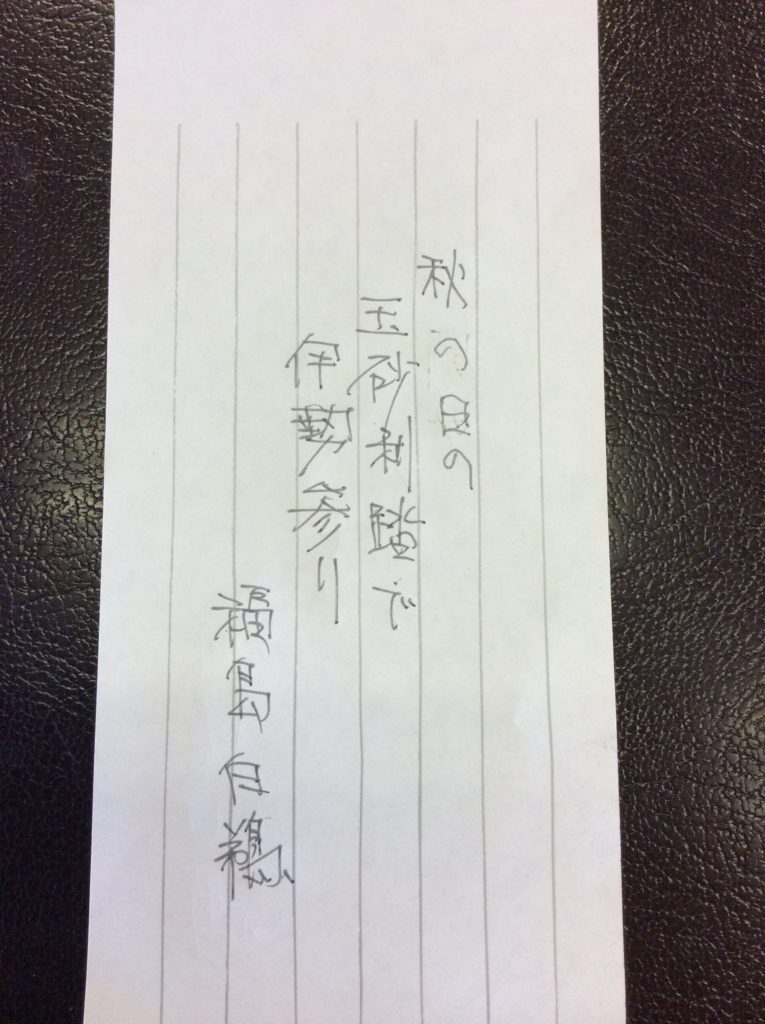 秋の日の
玉砂利踏で
伊勢参り
福島白穏